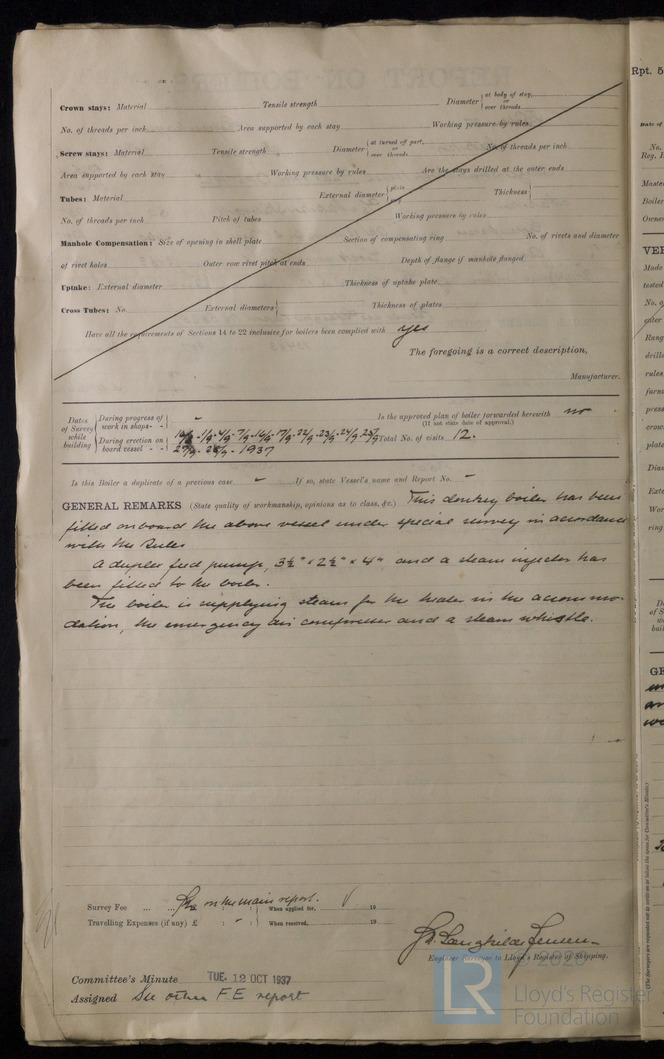 Crown stays: Material Tensile strength Diameter { at body of stay, or over threads
No. of threads per inch Area supported by each stay Working pressure by rules
Screw stays: Material Tensile strength Diameter { at turned off part, or over threads No. of threads per inch
Area supported by each stay Working pressure by rules Are the stays drilled at the outer ends
Tubes: Material External diameter { plain Thickness {
No. of threads per inch Pitch of tubes Working pressure by rules
Manhole Compensation: Size of opening in shell plate Section of compensating ring No. of rivets and diameter
of rivet holes Outer row rivet pitch at ends Depth of flange if manhole flanged
Uptake: External diameter Thickness of uptake plate
Cross Tubes: No. External diameters { Thickness of plates
Have all the requirements of Sections 14 to 22 inclusive for boilers been complied with yes
The foregoing is a correct description,
Manufacturer.
Dates of Survey while building { During progress of work in shops - - - Is the approved plan of boiler forwarded herewith no
(If not state date of approval.)
During erection on board vessel - - 1937 Total No. of visits 12.
Is this Boiler a duplicate of a previous case - If so, state Vessel's name and Report No. -
GENERAL REMARKS (State quality of workmanship, opinions as to class, &c.) This donkey boiler has been
fitted onboard the above vessel under special survey in accordance
with the Rules
A duplex feed pump, 3½" × 2½" × 4" and a steam injector has
been fitted to the boiler.
The boiler is supplying steam for the heater in the accommo-
dation, the emergency air compressor and a steam whistle.
Survey Fee ... ... on the main report. When applied for, 19
Travelling Expenses (if any) £ : - : When received, 19
Engineer Surveyor to Lloyd's Register of Shipping.
Committee's Minute TUE. 12 OCT 1937
Assigned See other F.E report
© 2020
LR
Lloyd's Register
Foundation
Rpt. 5